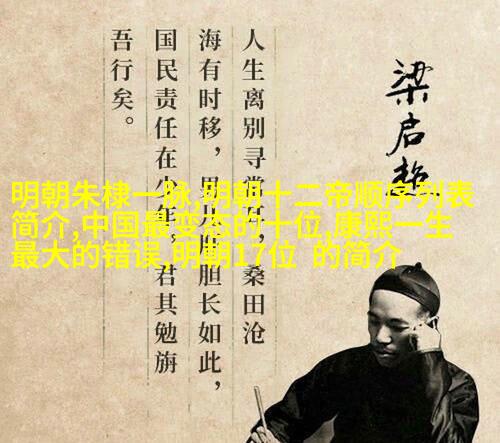 梁启超
人生离别寻常，桑田沧
海有时移，男儿肝胆长如此，
国民责任在少年，君其勉旃
吾行矣。
明朝朱棣一脉,明朝十二帝顺序列表
简介,中国最变态的十位,康熙一生
最大的错误,明朝17位 的简介